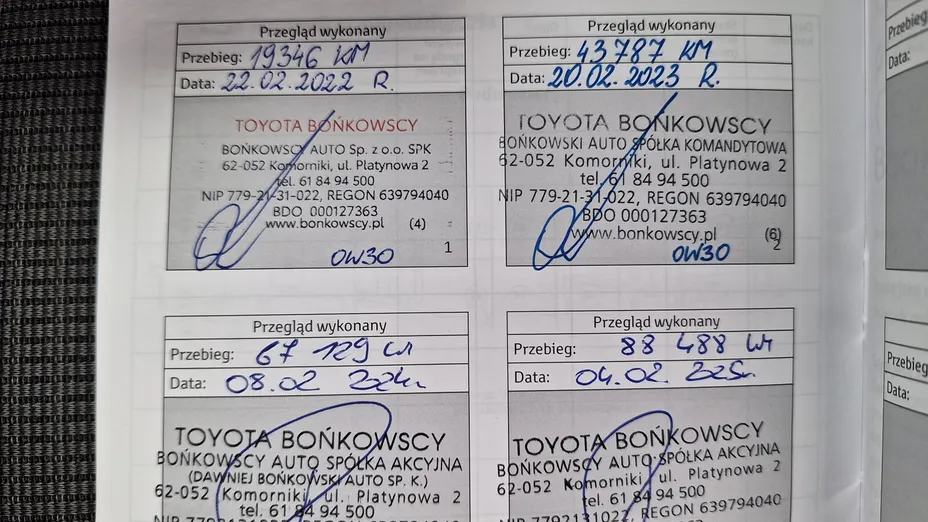 Przegląd wykonany
Przebieg: 19346 KM
Data: 22.02.2022 R.
TOYOTA BOŃKOWSCY
BOŃKOWSCY AUTO Sp. z o.o. SPK
62-052 Komorniki, ul. Platynowa 2
tel. 61 84 94 500
NIP 779-21-31-022, REGON 639794040
BDO 000127363
www.bonkowscy.pl (4)
1
0W30
Przegląd wykonany
Przebieg: 43787 KM
Data: 20.02.2023 R.
TOYOTA BOŃKOWSCY
BOŃKOWSKI AUTO SPÓŁKA KOMANDYTOWA
62-052 Komorniki, ul. Platynowa 2
tel. 61 84 94 500
NIP 779-21-31-022, REGON 639794040
BDO 000127363
www.bonkowscy.pl (6)
2
0W30
Przegląd wykonany
Przebieg: 67 129
Data: 08.02
TOYOTA BOŃKOWSCY
BOŃKOWSCY AUTO SPÓŁKA AKCYJNA
(DAWNIEJ BOŃKOWSKI AUTO SP. K.)
62-052 Komorniki, ul. Platynowa 2
tel. 61 84 94 500
NIP 7792131022, REGON 639794040
Przegląd wykonany
Przebieg: 88 488
Data: 04.02.
TOYOTA BOŃKOWSCY
BOŃKOWSCY AUTO SPÓŁKA AKCYJNA
62-052 Komorniki, ul. Platynowa 2
tel. 61 84 94 500
NIP 7792131022, REGON 639794040
Przebieg
Data:
Przebieg
Data: